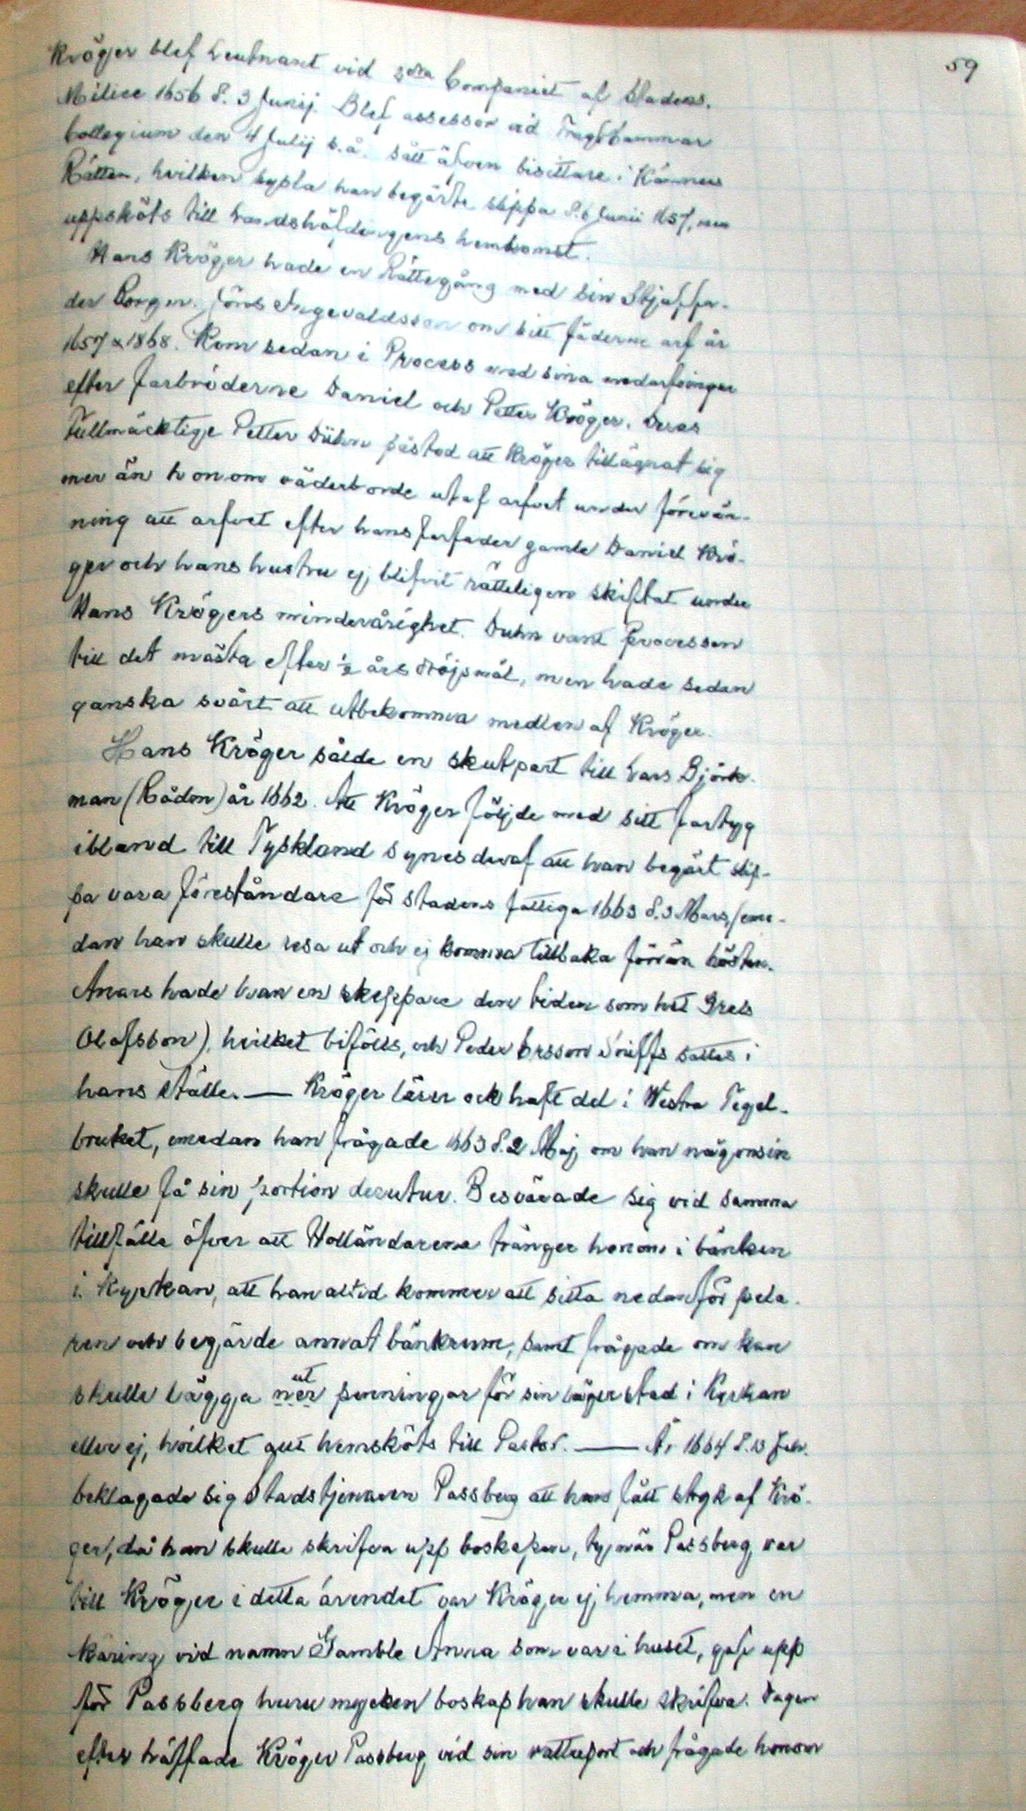 59
Kröger blef Leutnant vid 2dra Companiet af Stadens.
Milice 1656 d. 3 Junij. Blef assessor vid
Collegium den 4 Julij s.å. satt äfven bisittare i Kämners
Rätten, hvilken sysla han begärte slippa d. 6 Junii 1657, men
uppsköts till Landshöfdingens hemkomst.
Hans Kröger hade en Rättegång med sin Styffa-
der Borgm. Jöns Ingevaldsson om sitt fäderne arf år
1657 & 1868. Kom sedan i Process med sina medarfvingar
efter farbröderne Daniel och Petter Kröger. Deras
Fullmäcktige Petter Dühn påstod att Kröger tillägnat sig
mer än honom väderborde utaf arfvet under förevän-
ning att arfvet efter hans farfader gamle Daniel Krö-
ger och hans hustru ej blifvit rätteligen skiftat under
Hans Krögers minderårighet. Duhn vant Processen
till det mästa efter ½ års dröjsmål, men hade sedan
ganska svårt att utbekomma medlen af Kröger.
Hans Kröger sålde en skutpart till Lars Björk-
man (Rådm) år 1662. Att Kröger följde med sitt fartyg
ibland till Tyskland synes deraf att han begärt slip-
pa vara föreståndare för stadens fattiga 1663 d. 3 Mars, (eme-
dan han skulle resa ut och ej komma tillbaka förrän hösten.
Anars hade han en skeppare den tiden som het Grels
Olofsson), hvilket bifölls, och Peder Ersson sattes i
hans ställe. — Kröger lärer ock haft del i Westra Tegel-
bruket, emedan han frågade 1663 d. 2 Maj om han någonsin
skulle få sin portion derutur. Besvärade sig vid samma
tillfälle öfver att Holländarena tränger honom i bänken
i Kyrkan, att han altid kommer att sitta nedanför pela-
ren och begärde annat bänkrum, samt frågade om han
skulle lägga ner ut penningar för sin lägerstad i Kyrkan
eller ej, hvilket allt hemsköts till Pastor. — År 1664 d. 13 Febr.
beklagade sig Stadstjenaren Passberg att han fått stryk af Krö-
ger, då han skulle skrifva upp boskapen, ty när Passberg var
till Kröger i detta ärendet var Kröger ej hemma, men en
käring vid namn Gamble Anna som var i huset, gaf upp
för Passberg huru mycken boskap han skulle skrifva. Dagen
efter träffade Kröger Passberg vid sin port och frågade honom